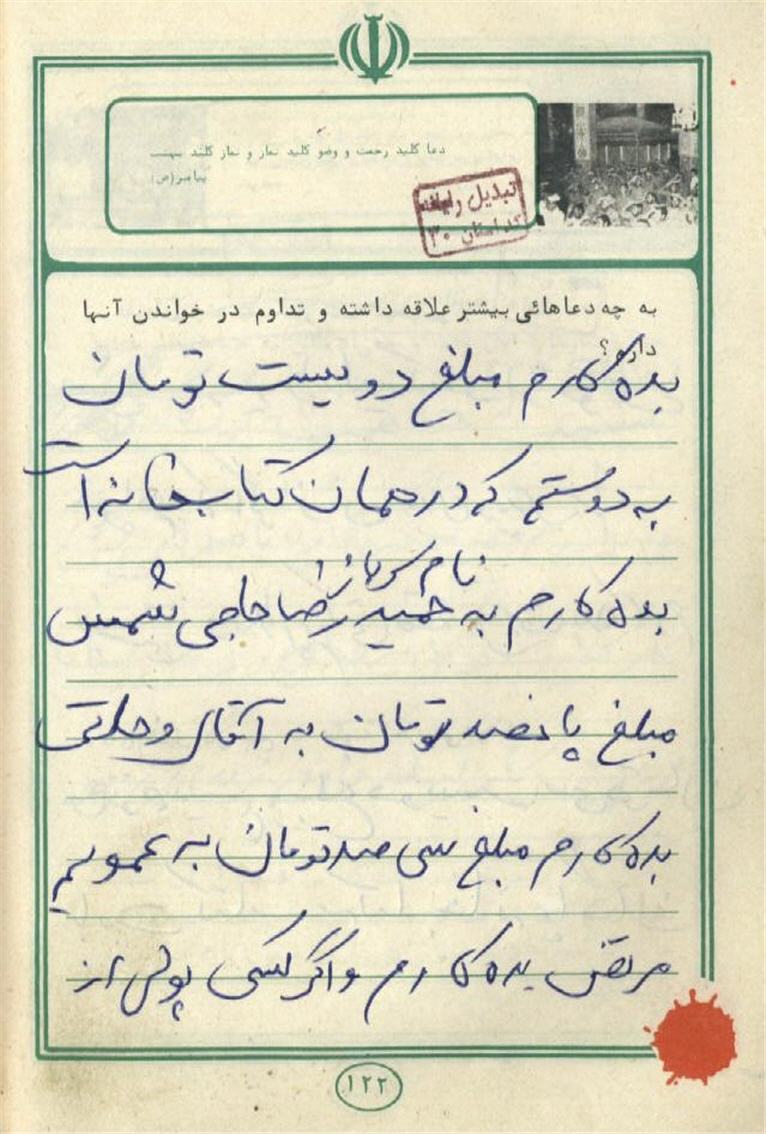 دعا کلید رحمت و وضو کلید نماز و نماز کلید بهشت
پیامبر(ص)
تبدیل رایانه
کد استان ۳۰
به چه دعاهائی بیشتر علاقه داشته و تداوم در خواندن آنها
دارم؟
بده کارم مبلغ دویست تومان
به دوستم که در همان کتابخانه است
نام
بده کارم به حمید رضا حاجی شمس
مبلغ پانصد تومان به آقای وحدتی
بده کارم مبلغ سی صد تومان به عمویم
مرتضی بده کارم و اگر کسی پولی از
۱۲۲